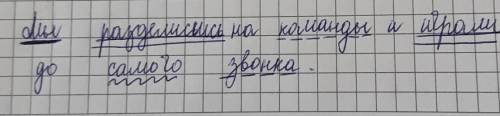 Мы разделились на команды и играли
до самого звонка.